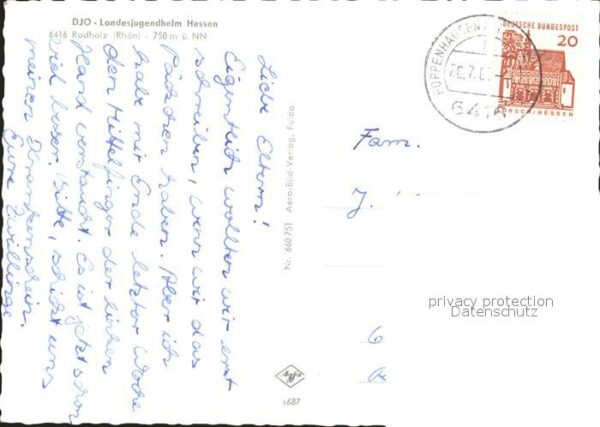 DJO - Landesjugendheim Hessen
6416 Rodholz (Rhön) - 750 m ü. NN
Liebe Eltern!
Eigentlich wollten wir erst
schreiben, wenn wir das
Päckchen haben. Aber ich
habe mir Ende letzter Woche
den Mittelfinger der linken
Hand verstaucht. Es ist jetzt schon
viel besser. Bitte, schickt uns
meinen Krankenschein.
Eure Zwillinge
Nr. 660 751 Aero-Bild-Verlag, Fulda
s687
DEUTSCHE BUNDESPOST
20
LORSCH/HESSEN
6414
Fam.
J.
privacy protection
Datenschutz